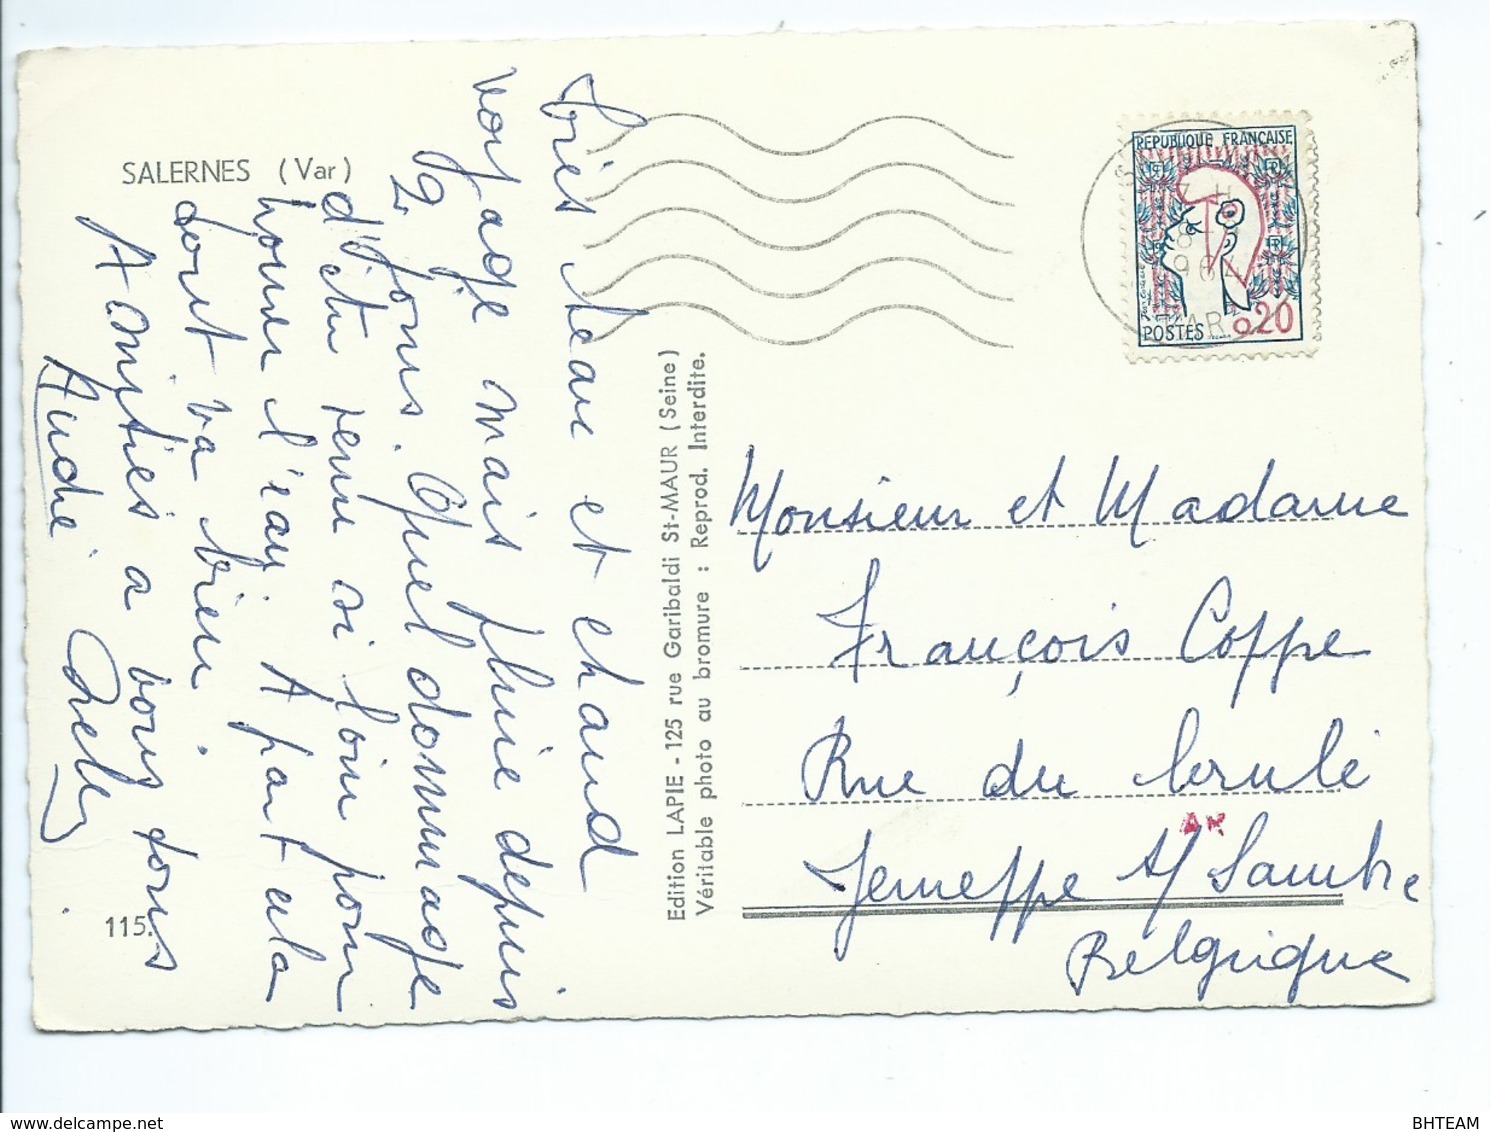 SALERNES (Var)
Très beau et chaud
voyage mais pluie depuis
2 jours. Quel dommage
d'être venu si loin pour
trouver l'eau. A part cela
tout va bien.
Amitiés à vous tous
André
115.
Edition LAPIE - 125 rue Garibaldi St-MAUR (Seine)
Véritable photo au bromure : Reprod. Interdite.
REPUBLIQUE FRANÇAISE
POSTES 0,20
Monsieur et Madame
François Coppe
Rue du brulé
Jemeppe s/ Sambre
Belgique
BHTEAM
www.delcampe.net